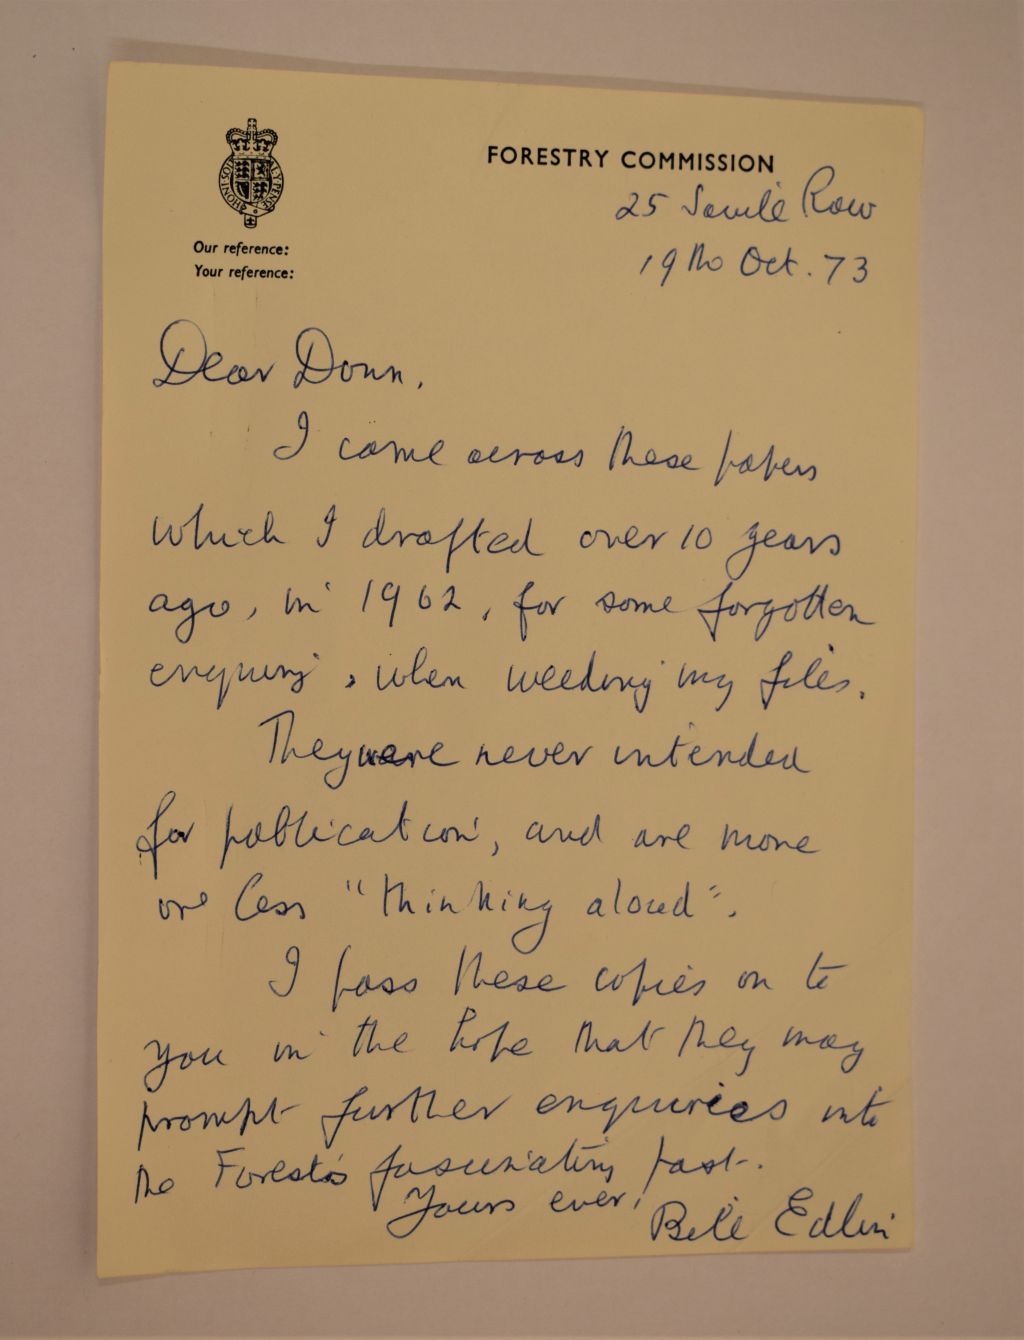 HONI SOIT
FORESTRY COMMISSION
25 Savile Row
19th Oct. 73
Our reference:
Your reference:
Dear Donn,
I came across these papers
which I drafted over 10 years
ago, in 1962, for some forgotten
enquiry, when weeding my files.
They were never intended
for publication, and are more
or less "thinking aloud".
I pass these copies on to
you in the hope that they may
prompt further enquiries into
the Forest's fascinating past.
Yours ever,
Bill Edlin